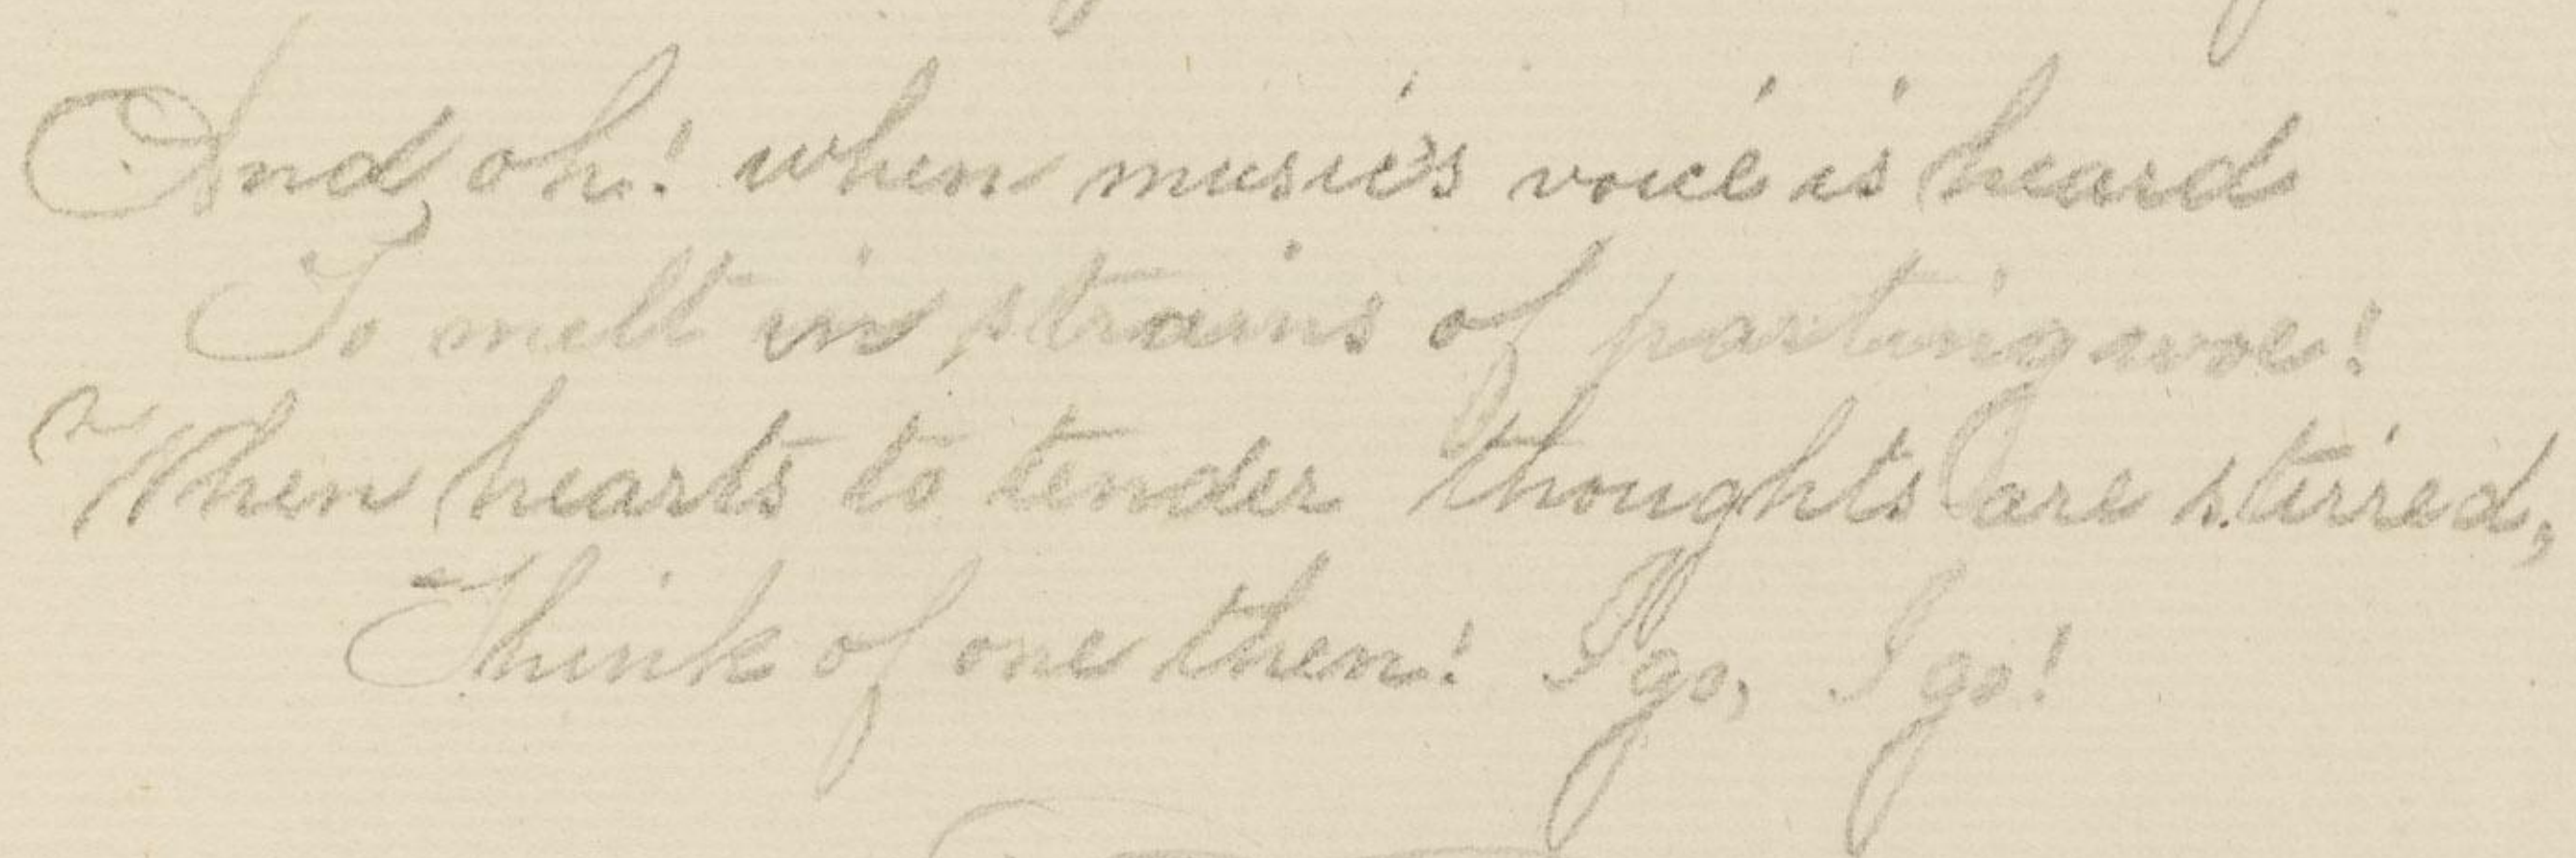 And oh! when music's voice is heard
To melt in strains of parting woe!
When hearts to tender thoughts are stirred,
Think of one then! I go, I go!